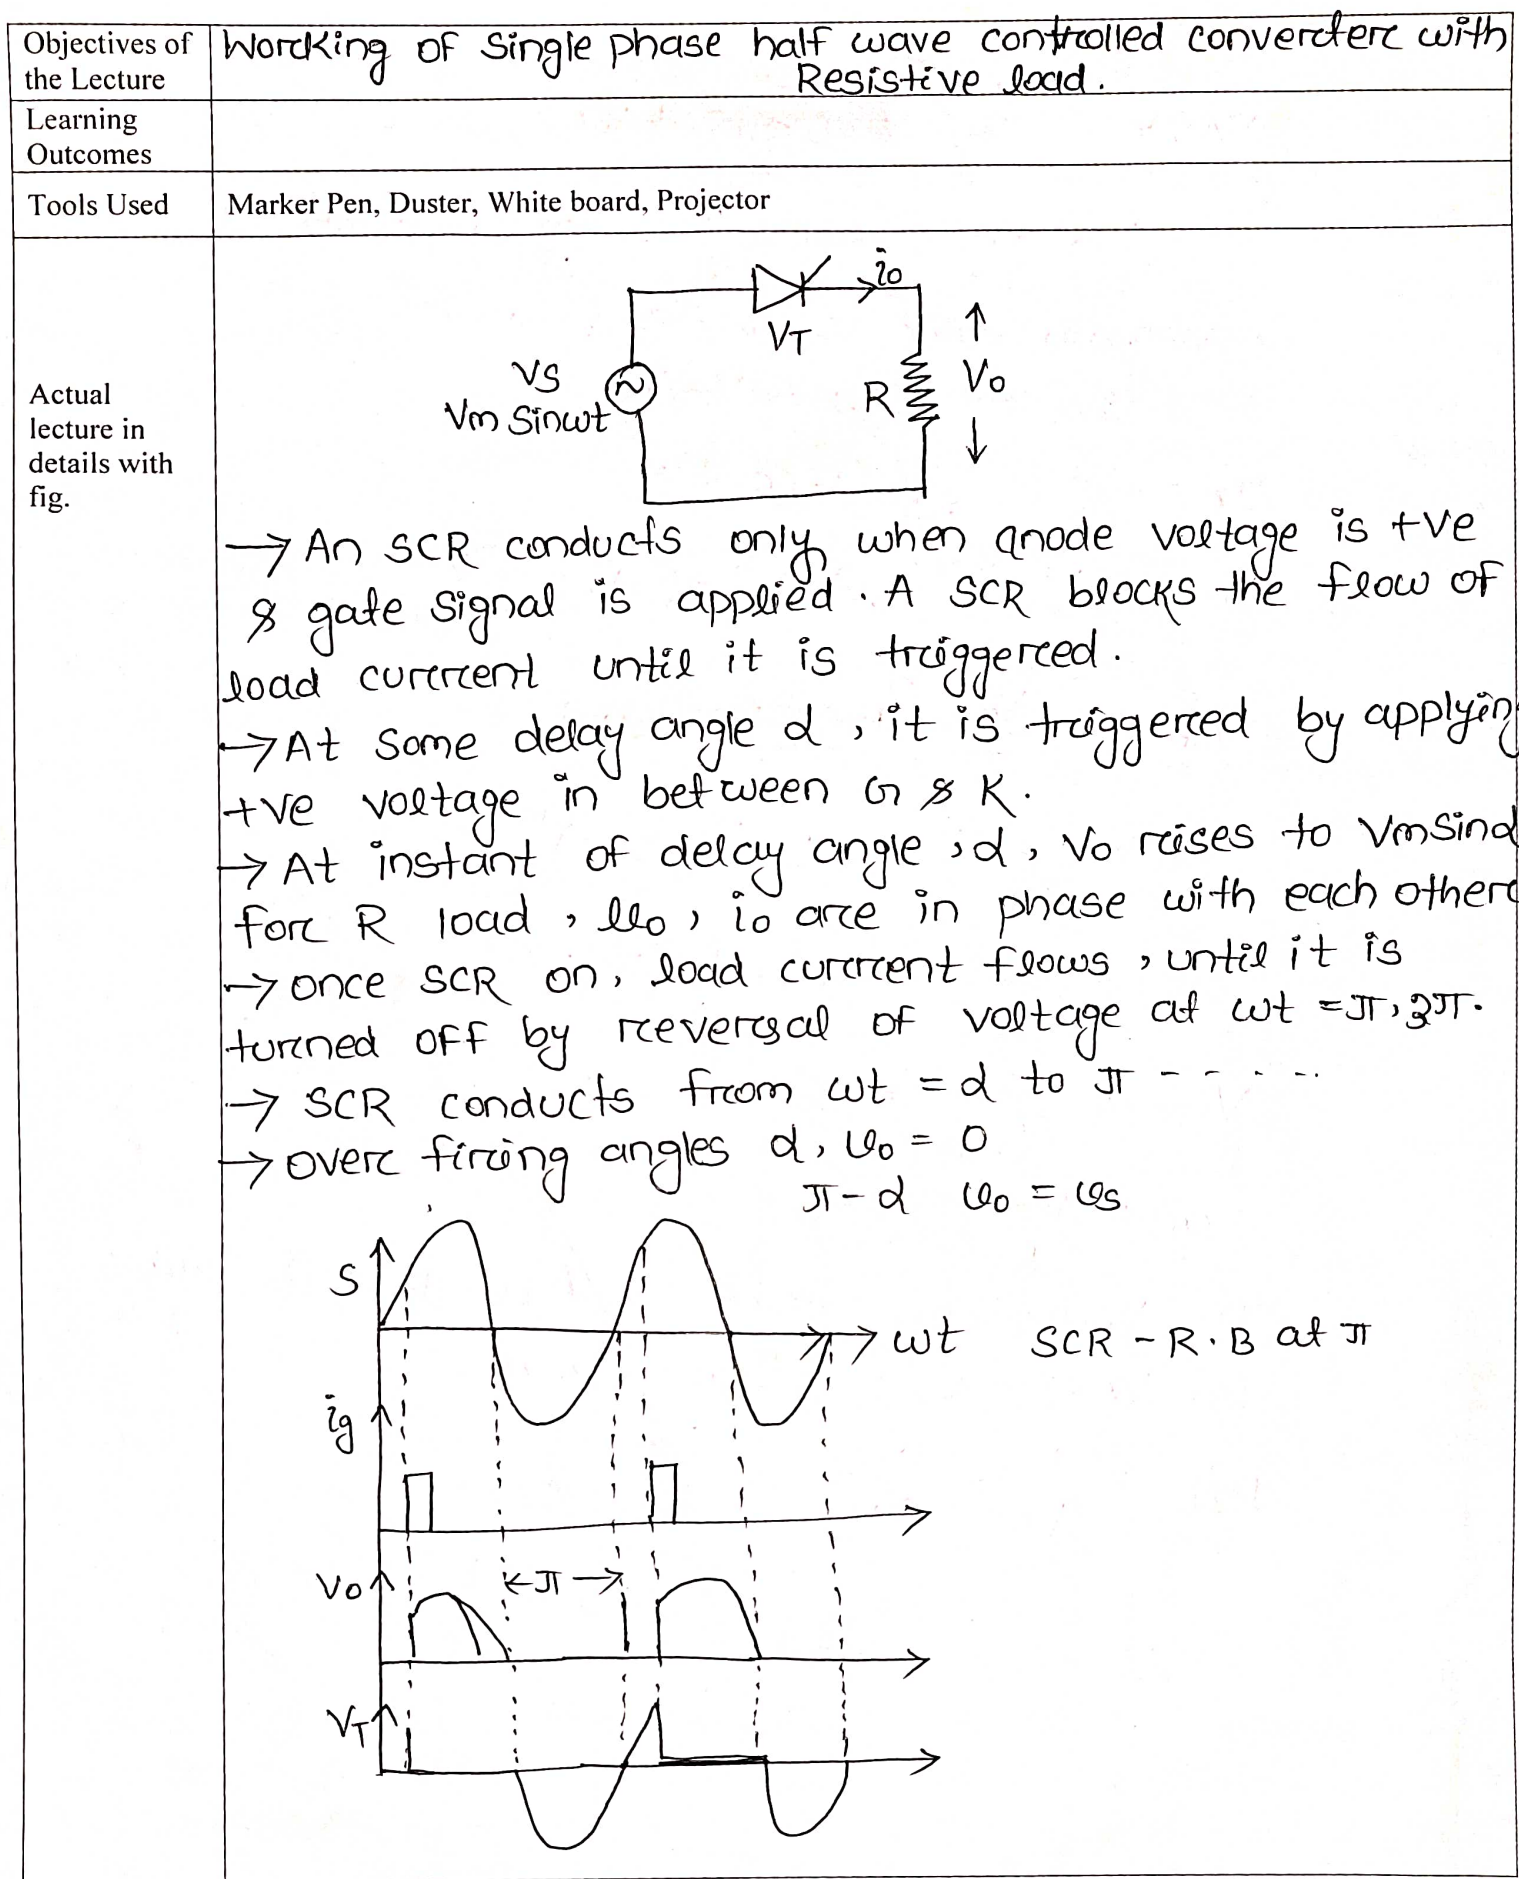 Objectives of the Lecture
Working of Single phase half wave controlled converter with
Resistive load.
Learning
Outcomes
Tools Used
Marker Pen, Duster, White board, Projector
Actual
lecture in
details with
fig.
i0
VT
VS
Vm Sinωt
R
V0
→ An SCR conducts only when anode voltage is +ve
& gate signal is applied. A SCR blocks the flow of
load current until it is triggered.
→ At some delay angle α, it is triggered by applying
+ve voltage in between G & K.
→ At instant of delay angle, α, V0 rises to Vm Sinα
for R load, v0, i0 are in phase with each other
→ once SCR on, load current flows, until it is
turned off by reversal of voltage at ωt = π, 3π.
→ SCR conducts from ωt = α to π - - - - -
→ over firing angles α, v0 = 0
π-α v0 = vs
S
ωt SCR - R.B at π
ig
V0
←π→
VT